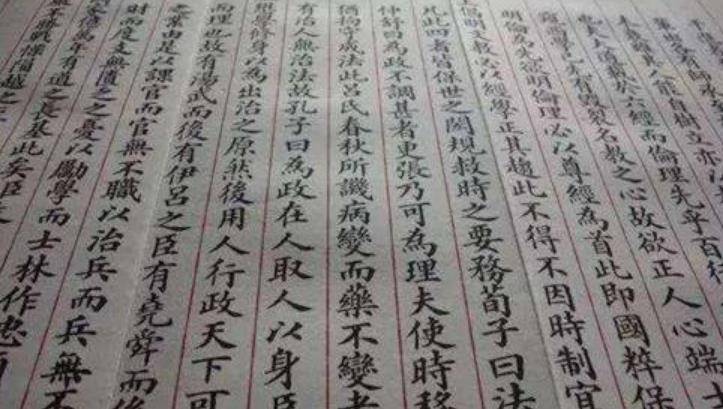 能自樹立亦以
大道載於六經而倫理先乎百行
西學已有毀裂名教之心故欲正人心端士
明倫為先欲明倫理必以尊經為首此即國粹保
倡明文教必以經學正其趨此不得不因時制宜
凡此四者皆保世之閎規救時之要務荀子曰法
仲舒曰為政不調甚者更張乃可為理夫使時移
猶拘守成法此呂氏春秋所譏病變而藥不變者
有治人無治法故孔子曰為政在人取人以身臣
懋學修身以為出治之原然後用人行政天下可
而理也故有湯武而後有伊呂之臣有堯舜而後
之業由是以課官而官無不職以治兵而兵無不
財而度支無匱乏之憂以勵學而士林作忠
億萬年有道之長基此矣臣
戰慄隕越之